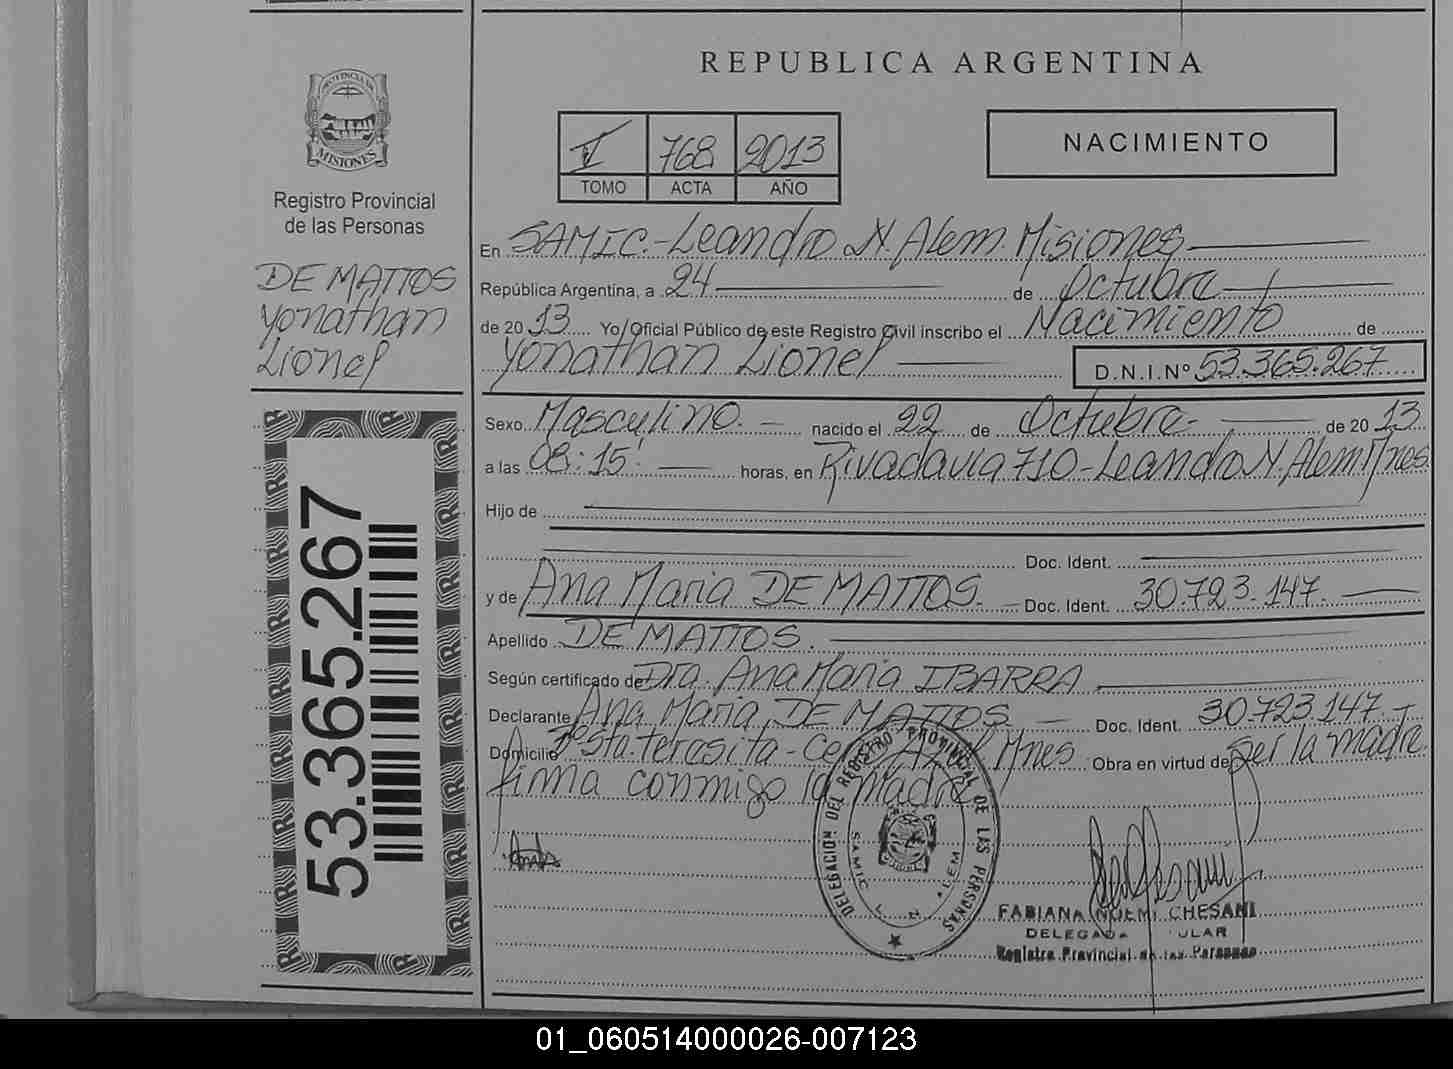 REPUBLICA ARGENTINA
PROVINCIA DE
MISIONES
Registro Provincial
de las Personas
DE MATTOS
Yonathan
Lionel
53.365.267
I 768 2013
TOMO ACTA AÑO
NACIMIENTO
En SAMIC.-Leandro N. Alem. Misiones
República Argentina, a 24 de Octubre
de 20 13 Yo Oficial Público de este Registro Civil inscribo el Nacimiento de
Yonathan Lionel D.N.I.Nº 53.365.267
Sexo Masculino. nacido el 22 de Octubre- de 20 13
a las 08:15' horas, en Rivadavia 710-Leandro N. Alem Mnes
Hijo de
Doc. Ident.
y de Ana Maria DE MATTOS. Doc. Ident. 30.723.147.
Apellido DE MATTOS.
Según certificado de Dra. Ana Maria IBARRA
Declarante Ana Maria DE MATTOS Doc. Ident. 30.723.147
Domicilio Sta. Teresita- Mnes Obra en virtud de ser la madre.
firma conmigo la madre
DELEGACION DEL REGISTRO PROVINCIAL DE LAS PERSONAS
SAMIC L. N. ALEM
FABIANA NOEMI CHESANI
DELEGADA
Registro Provincial de las Personas
01_060514000026-007123